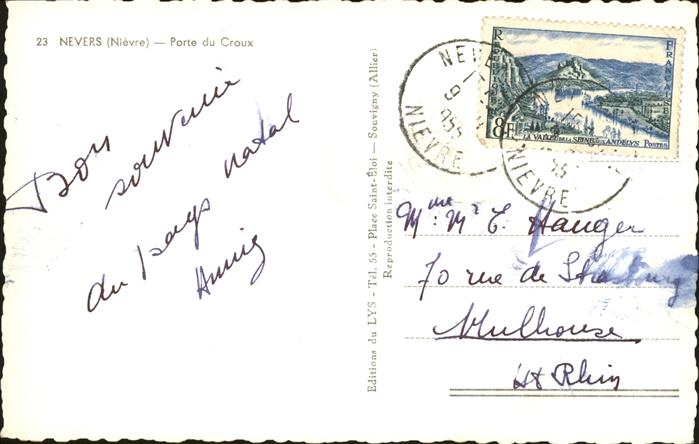 23 NEVERS (Nièvre) — Porte du Croux
Bon
souvenir
du pays natal
Editions du LYS - Tél. 55 - Place Saint-Eloi — Souvigny (Allier)
Reproduction interdite
NEVERS
NIEVRE
NIEVRE
REPUBLIQUE
FRANÇAISE
8F
LA VALLÉE DE LA SEINE AUX ANDELYS POSTES
Mme Mr E. Hauger
70 rue de Strasbourg
Mulhouse
Ht Rhin